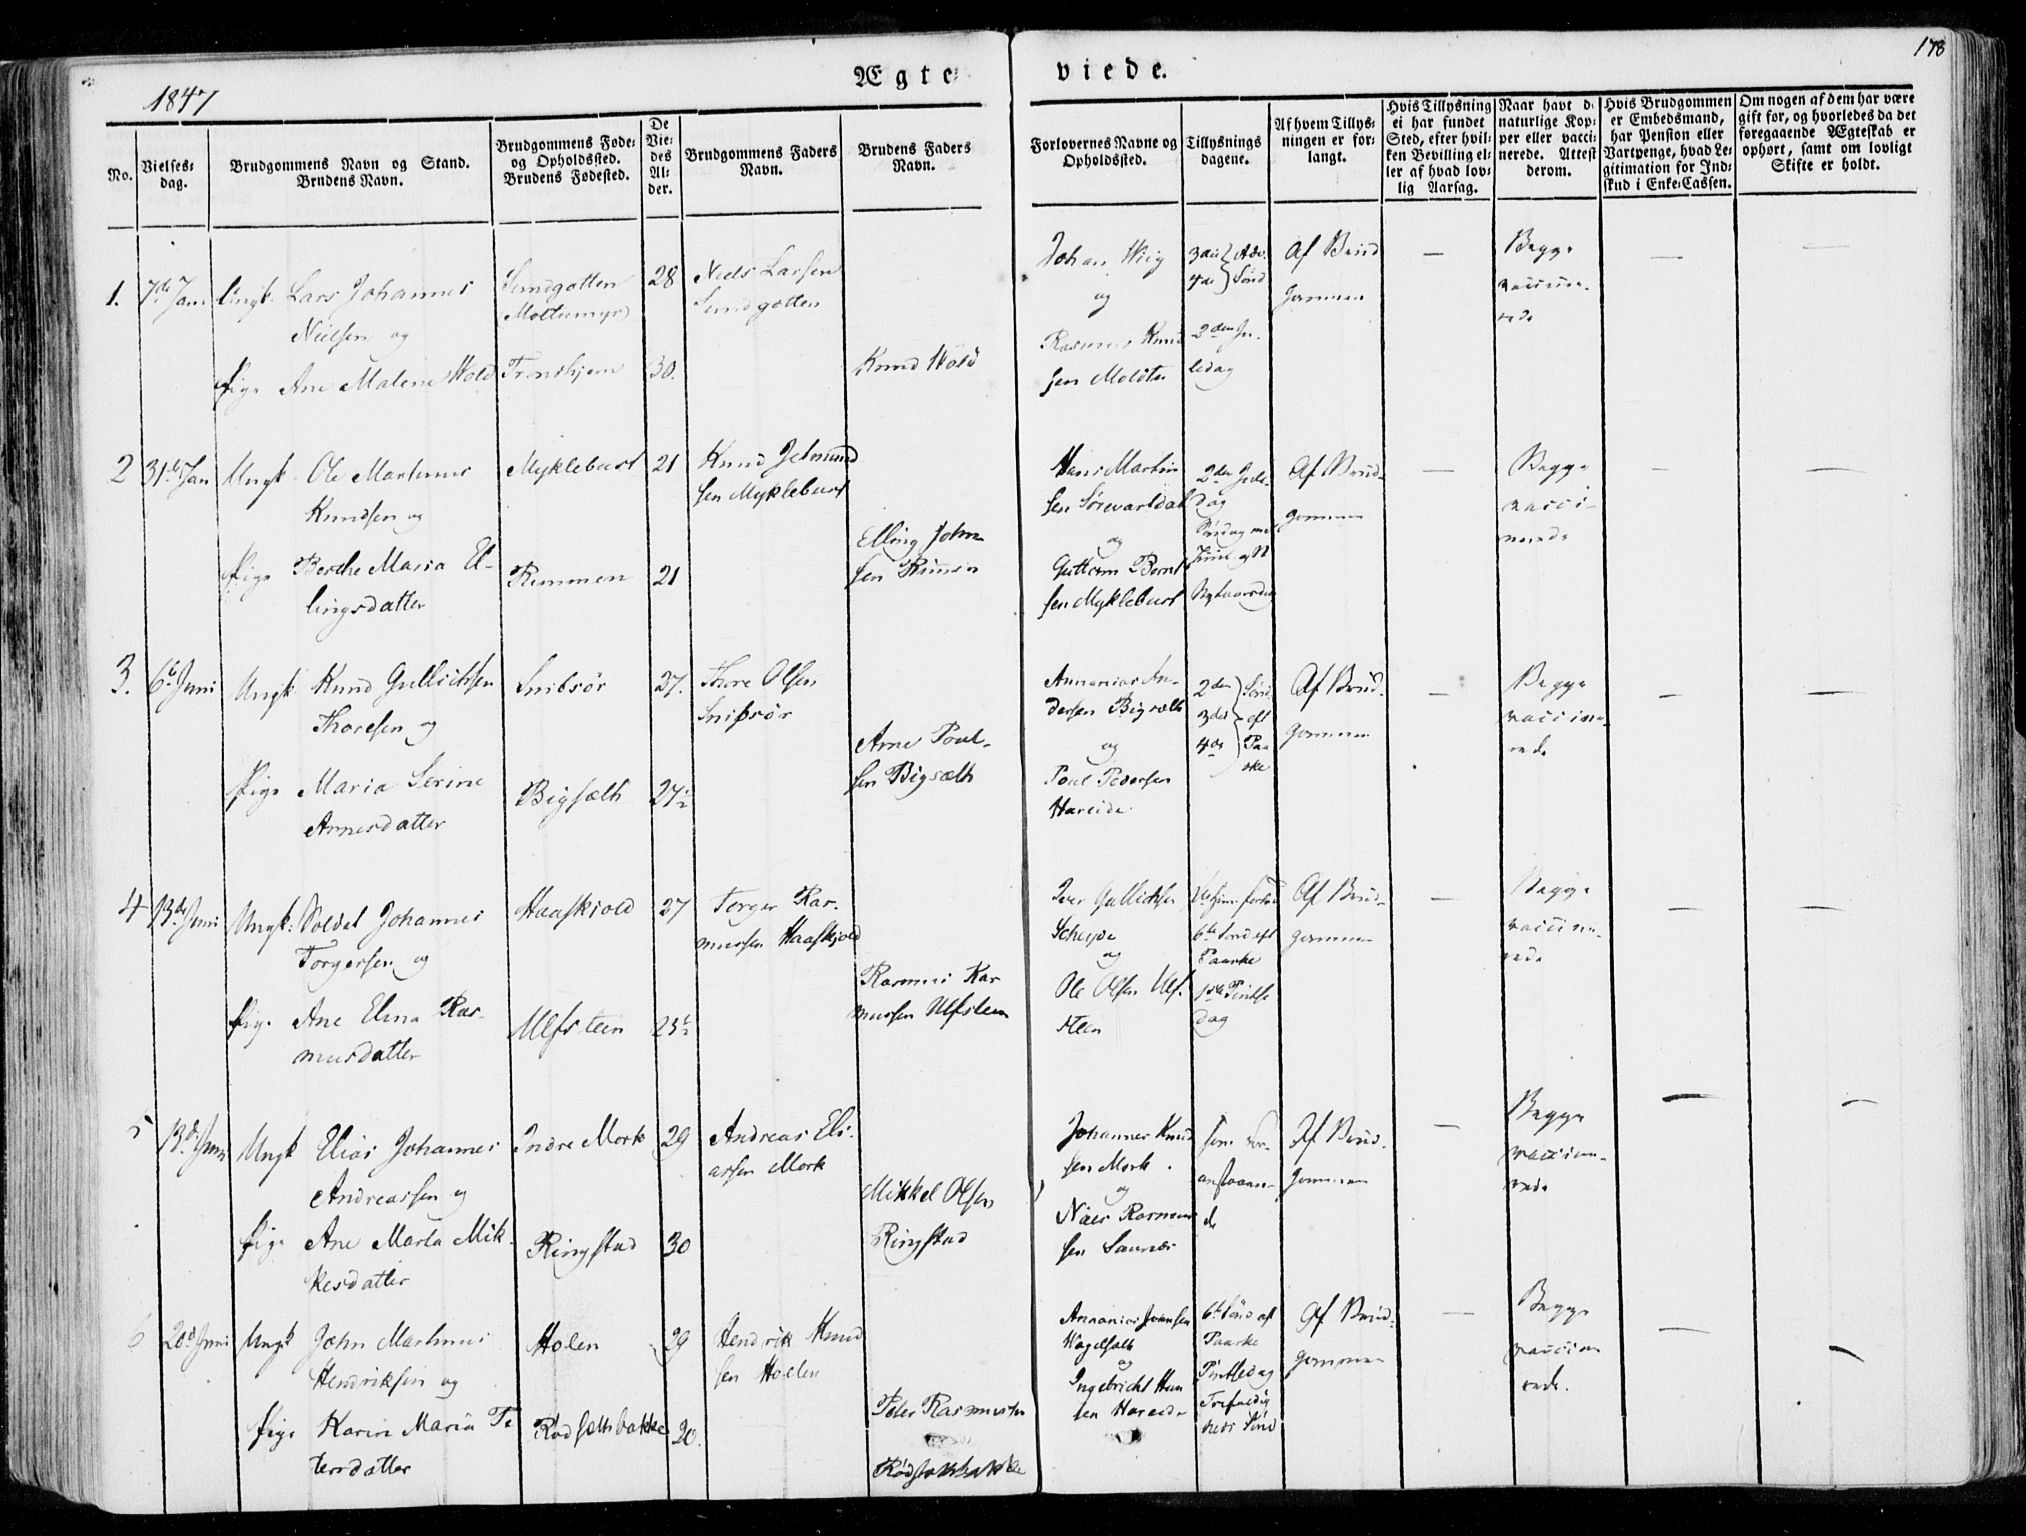 178
Ægte
viede.
1847
No.
Vielses-
dag.
Brudgommens Navn og Stand.
Brudens Navn.
Brudgommens Føde-
og Opholdssted.
Brudens Fødested.
De
Vie-
des
Al-
der.
Brudgommens Faders
Navn.
Brudens Faders
Navn.
Forlovernes Navne og
Opholdsted.
Tillysnings
dagene.
Af hvem Tillys-
ningen er for-
langt.
Hvis Tillysning
ei har fundet
Sted, efter hvil-
ken Bevilling el-
ler af hvad lov-
lig Aarsag.
Naar havt de
naturlige Kop-
per eller vacci-
nerede. Attest
derom.
Hvis Brudgommen
er Embedsmand,
har Pension eller
Vartpenge, hvad Le-
gitimation for Ind-
skud i Enke-Cassen.
Om nogen af dem har være
gift før, og hvorledes da det
foregaaende Ægteskab er
ophørt, samt om lovligt
Skifte er holdt.
1. 7de Jan Ungk. Lars Johannes
Nielsen og
Pige Ane Malene Hold
Sundgotten
Moltumyr
Trondhjem
28
30.
Niels Larsen
Sundgotten
Knud Hold
Johan Wiig
og
Rasmus Knud
sen Moldtu
3die Adv.
4de Sønd
2den Ju-
ledag
Af Brud
gommen
—
Begge
vaccine-
rede
—
—
2 31te Jan Ungk. Ole Martinus
Knudsen og
Pige Berthe Maria El-
lingsdatter
Myklebust
Rimmen
21
21
Knud Jetmund
sen Myklebust
Elling John-
sen Rimmen
Hans Martin
sen Sørevartdal
og
Guttorm Bernt
sen Myklebust
2den Jule-
dag
Nytaarsdag
Af Brud-
gommen
—
Begge
vacci-
nerede
—
—
3. 6te Juni Ungk. Knud Gullichsen
Thoresen og
Pige Maria Serine
Arnesdatter
Snibsør
Bigsæth
27.
27½
Thore Olsen
Snibsør
Arne Poul-
sen Bigsæth
Annanias An-
dersen Bigsæth
og
Poul Pedersen
Hareide.
2den
3die
4de
Sønd
eft
Paa
ske
Af Brud-
gommen
—
Begge
vaccine-
rede
—
—
4 13de Juni Ungk: Soldat Johannes
Torgersen og
Pige Ane Elina Ras-
musdatter
Haaskjold
Ulfsteen
27
25½
Torger Ras-
mussen Haaskjold
Rasmus Ras
mussen Ulfsteen
Iver Gullichsen
og
Ole Olsen Ulf-
steen
6te Sønd eft
Paaske
1ste Pintse
dag
Af Brud-
gommen
—
Begge
vaccine-
rede
—
—
5 13de Juni Ungk Elias Johannes
Andreassen og
Pige Ane Marta Mik-
kelsdatter
Indre Mork
Ringstad
29
30
Andreas Eli-
assen Mork
Mikkel Olsen
Ringstad
Johannes Knud
sen Mork.
og
Niels Rasmus
sen Saunæs
som for-
anstaaen-
de
Af Brud-
gommen
—
Begge
vaccine-
rede
—
—
6 20de Juni Ungk John Martinus
Hendriksen og
Pige Karin Maria Pe
tersdatter
Holen
Rødsætbakke
29
20.
Hendrik Knud
sen Holen
Peter Rasmussen
Rødsætbakke
Annanias Iversen
og
Ingebricht Han
sen Hareide
6te Sønd eft
Paaske
Pintsedag
Trefoldig
heds Sønd
Af Brud-
gommen
—
Begge
vaccine
rede.
—
—